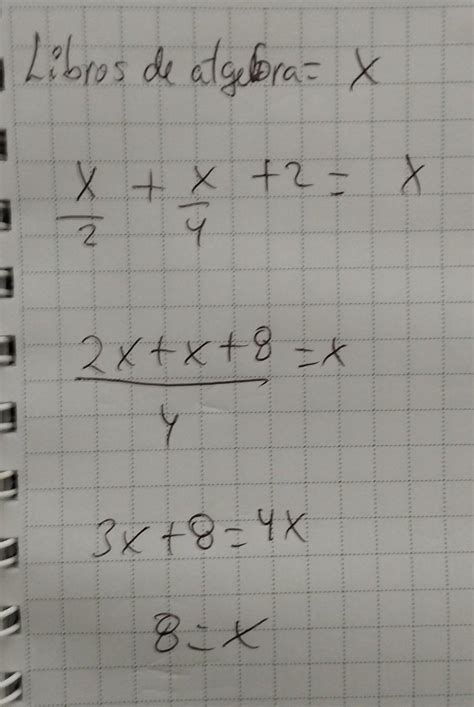 Libros de algebra = x
x/2 + x/4 + 2 = x
2x + x + 8 / 4 = x
3x + 8 = 4x
8 = x